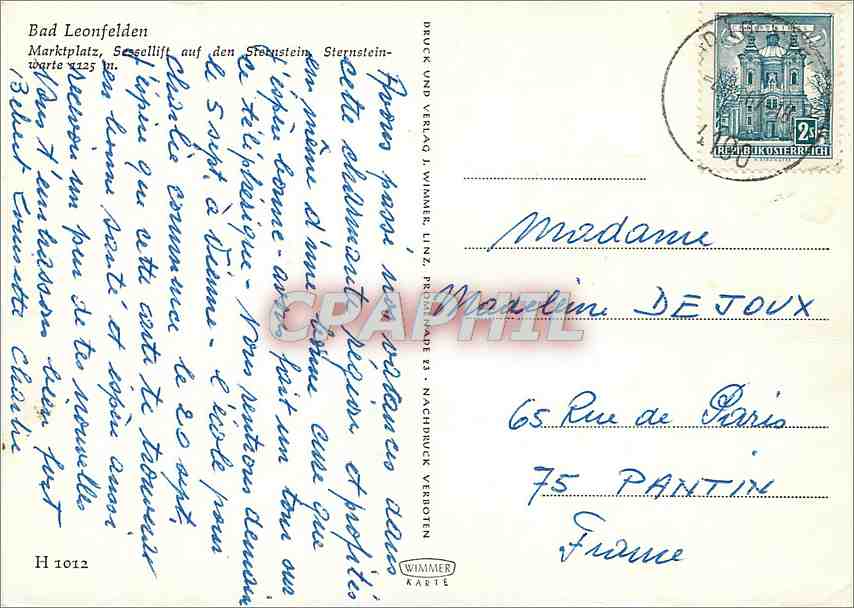 Bad Leonfelden
Marktplatz, Sessellift auf den Sternstein, Sternstein-
warte 1125 m.
Avons passé nos vacances dans
cette charmante région et profités
en même d'une bonne cure que
j'espère bonne - avons fait un tour sur
ce téléphérique - Nous rentrons demain
le 5 sept. à Vienne - l'école pour
Charlie commence le 20 sept.
J'espère que cette carte te trouvera
en bonne santé et espère aussi
recevoir un peu de tes nouvelles
Nous t'embrassons bien fort
Charlie
H 1012
DRUCK UND VERLAG J. WIMMER, LINZ, PROMENADE 23 · NACHDRUCK VERBOTEN
WIMMER
KARTE
2S
REPUBLIK ÖSTERREICH
Madame
Madeleine DEJOUX
65 Rue de Paris
75 PANTIN
France
CPAPHIL